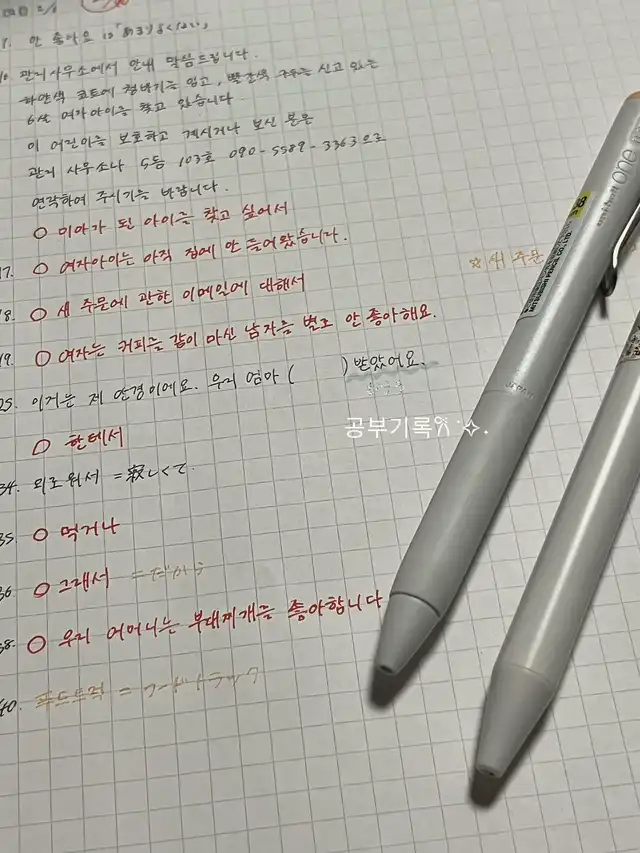 안 좋아요
10. 관리사무소에서 안내 말씀드립니다.
하얀색 코트에 청바지를 입고, 빨간색 구두를 신고 있는
6살 여자아이를 찾고 있습니다.
이 어린이를 보호하고 계시거나 보신 분은
관리 사무소나 5동 103호 090-5589-3363으로
연락하여 주시기를 바랍니다.
○ 미아가 된 아이를 찾고 싶어서
17. ○ 여자아이는 아직 집에 안 들어왔습니다.
☆ 새 주문
18. ○ 새 주문에 관한 이메일에 대해서
19. ○ 여자는 커피를 같이 마신 남자를 별로 안 좋아해요.
25. 이거는 제 안경이에요. 우리 엄마 ( ) 받았어요.
○ 한테서
공부기록
34. 외로워서 = 寂しくて.
35. ○ 먹거나
36. ○ 그래서 = だから
38. ○ 우리 어머니는 부대찌개를 좋아합니다
40. 푸드트럭 = フードトラック
uni-ball one